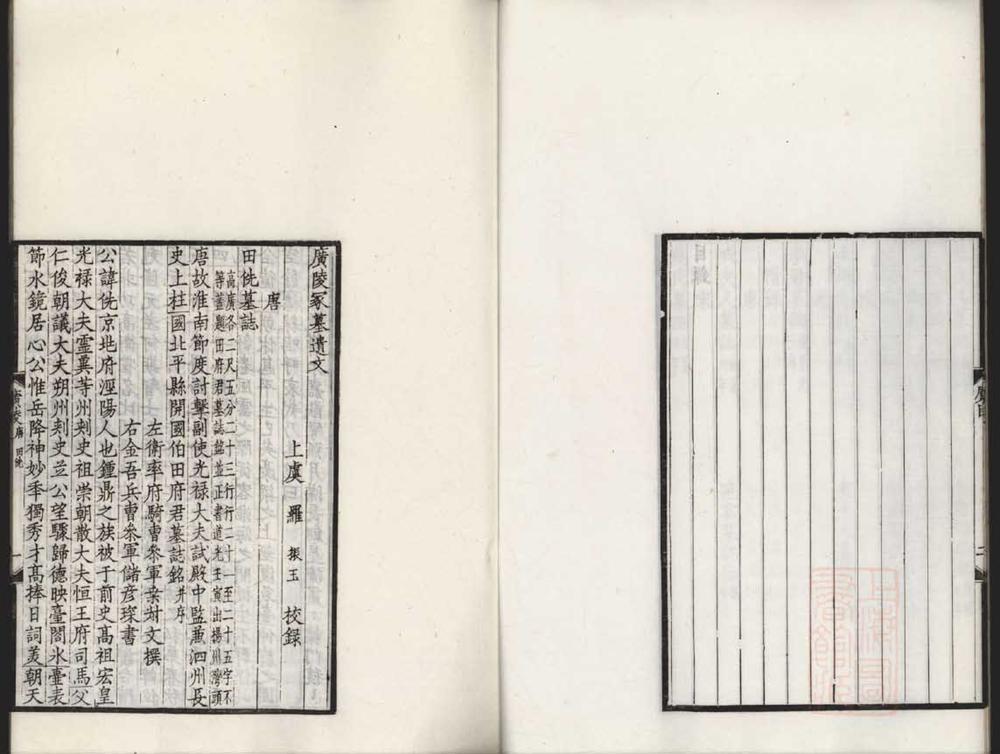 廣陵冢墓遺文
上虞 羅 振玉 校録
唐
田侁墓誌
高廣各二尺五分二十三行行二十一至二十五字不
等蓋題田府君墓誌銘蓋正書道光壬寅出揚州灣頭
唐故淮南節度討擊副使光禄大夫試殿中監兼泗州長
史上柱國北平縣開國伯田府君墓誌銘并序
左衛率府騎曹叅軍桒叔文撰
右金吾兵曹叅軍儲彦琛書
公諱侁京兆府涇陽人也鍾鼎之族被于前史高祖宏皇
光禄大夫靈冀等州刾史祖崇朝散大夫恒王府司馬父
仁俊朝議大夫朔州刾史竝公望驟歸德映臺閤氷壷表
節水鏡居心公惟岳降神妙秊獨秀才髙捧日詞羙朝天
唐 田侁
一
目録